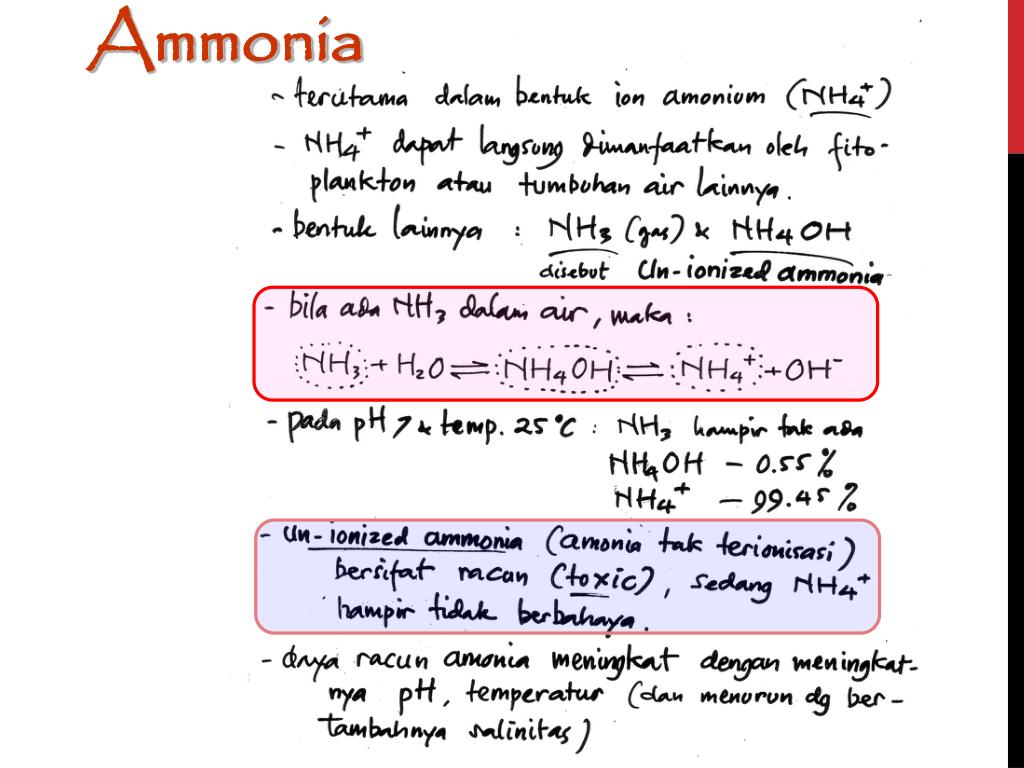 Ammonia
~ terutama dalam bentuk ion amonium (NH₄⁺)
- NH₄⁺ dapat langsung dimanfaatkan oleh fito-
plankton atau tumbuhan air lainnya.
- bentuk lainnya : NH₃ (gas) & NH₄OH
disebut Un-ionized ammonia
- bila ada NH₃ dalam air, maka :
NH₃ + H₂O ⇌ NH₄OH ⇌ NH₄⁺ + OH⁻
- pada pH 7 & temp. 25°C : NH₃ hampir tak ada
NH₄OH – 0.55 %
NH₄⁺ – 99.45 %
- Un-ionized ammonia (amonia tak terionisasi)
bersifat racun (toxic), sedang NH₄⁺
hampir tidak berbahaya.
- daya racun amonia meningkat dengan meningkat-
nya pH, temperatur (dan menurun dg ber-
tambahnya salinitas)